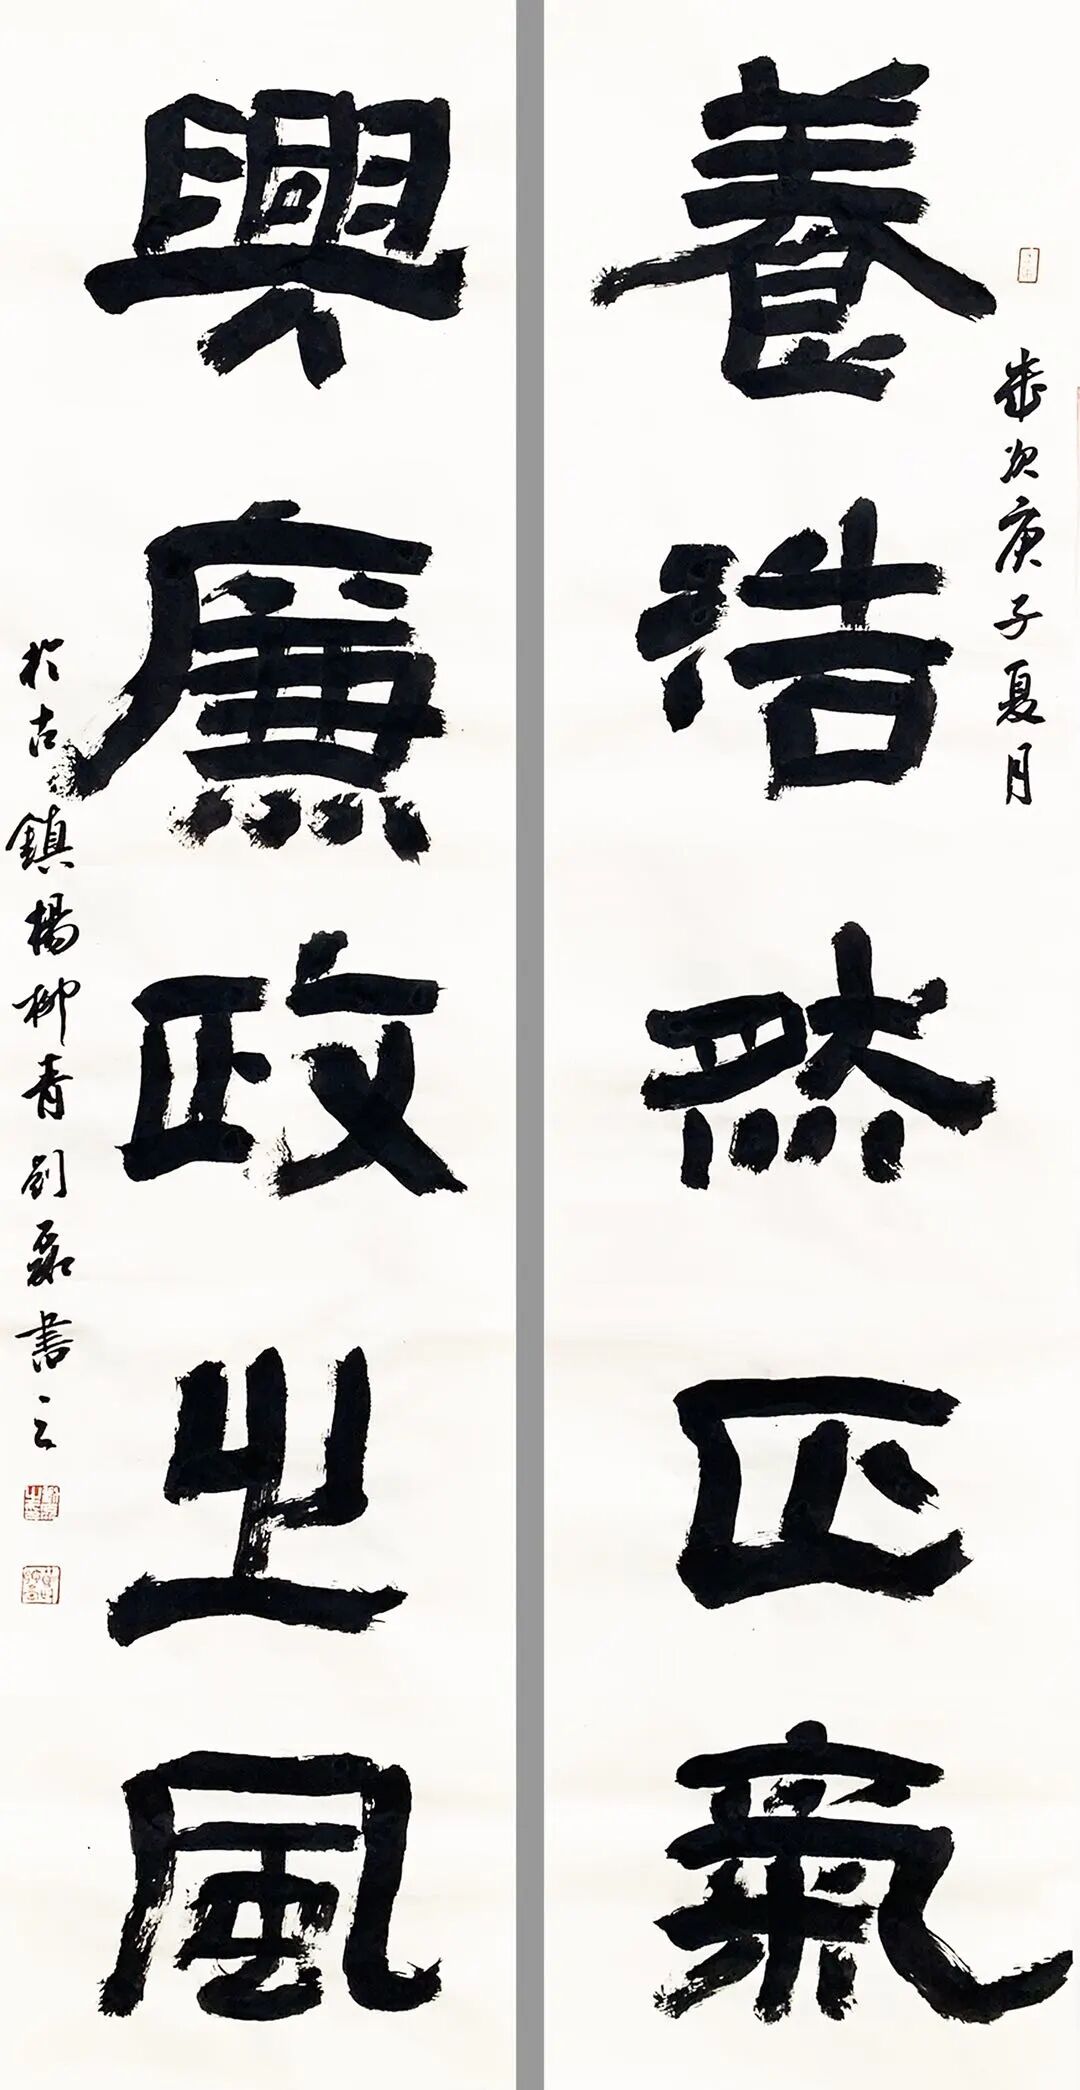 養浩然正氣
歲次庚子夏月
興廉政之風
於古鎮楊柳青劉磊書之